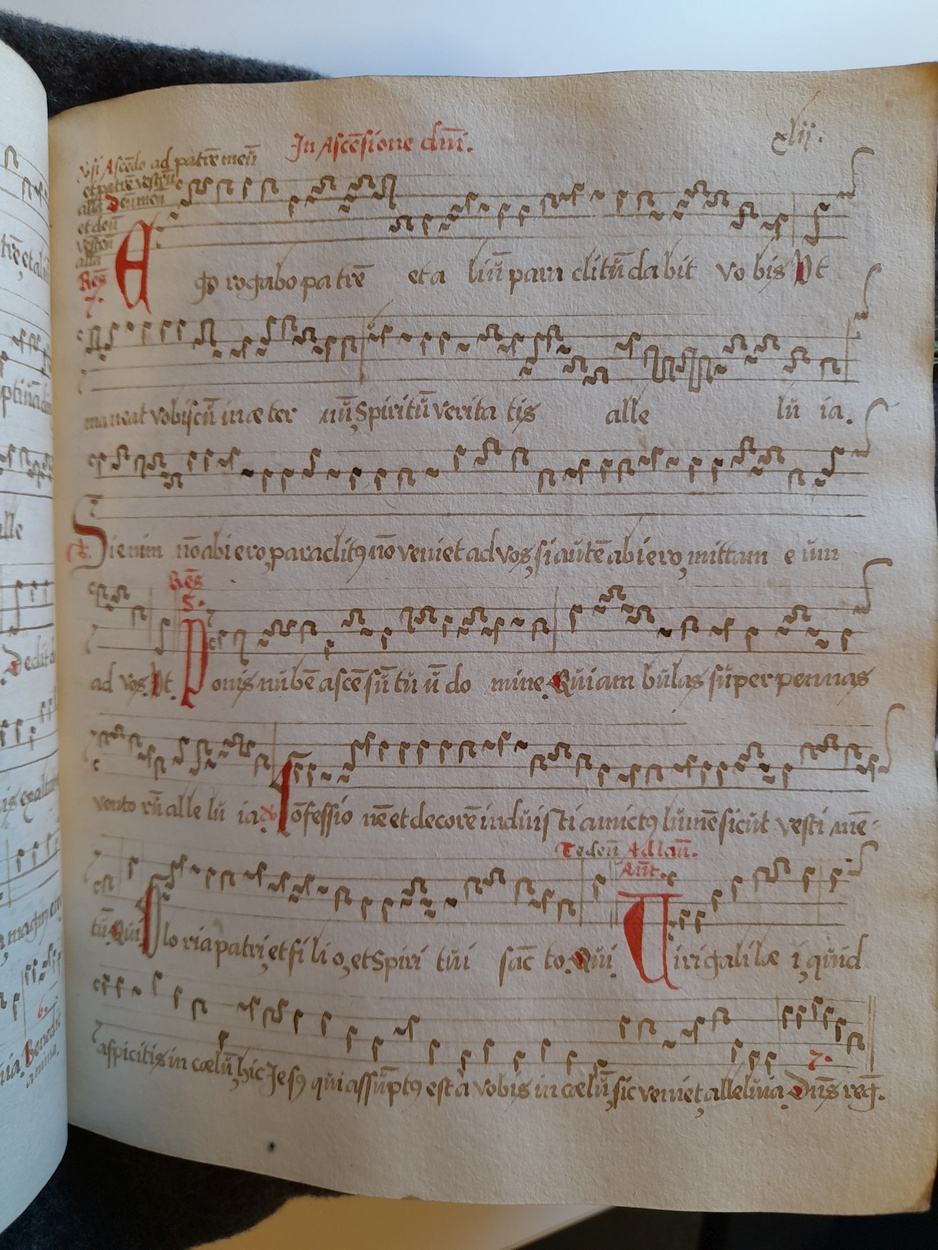 In Ascēsione dnī.
xlij.
Ascēdo ad patrē meū
et patrē vestrū
allā Deū meū
et deū
vestrū
allā
Res̄
7.
Ego rogabo patrē et a liū para clitū da bit vo bis Vt
maneat vobiscū in æ ter nū, Spiritū verita tis alle lu ia.
Si enim nō abi ero, paraclitꝰ nō veniet ad vos, si autē abiero, mittam e um
Res̄
8.
ad vos Vt. Ponis nubē ascē sū tu ū do mine. Qui am bulas super pennas
vento rū alle lu ia. Cōfessio nē et decorē induisti amictꝰ lumē sicut vesti mē-
Te deū Ad lau.
Ant.
tū. Qui Glo ria patri, et fi li o, et Spiri tui sāc to. Qui Viri galilæ i, quid
7.
aspicitis in cælū, hic Jesꝰ qui assūptꝰ est à vobis in cælū, sic veniet, alleluia. Dn̄s reḡ.
tiēs
Dedit
Bened